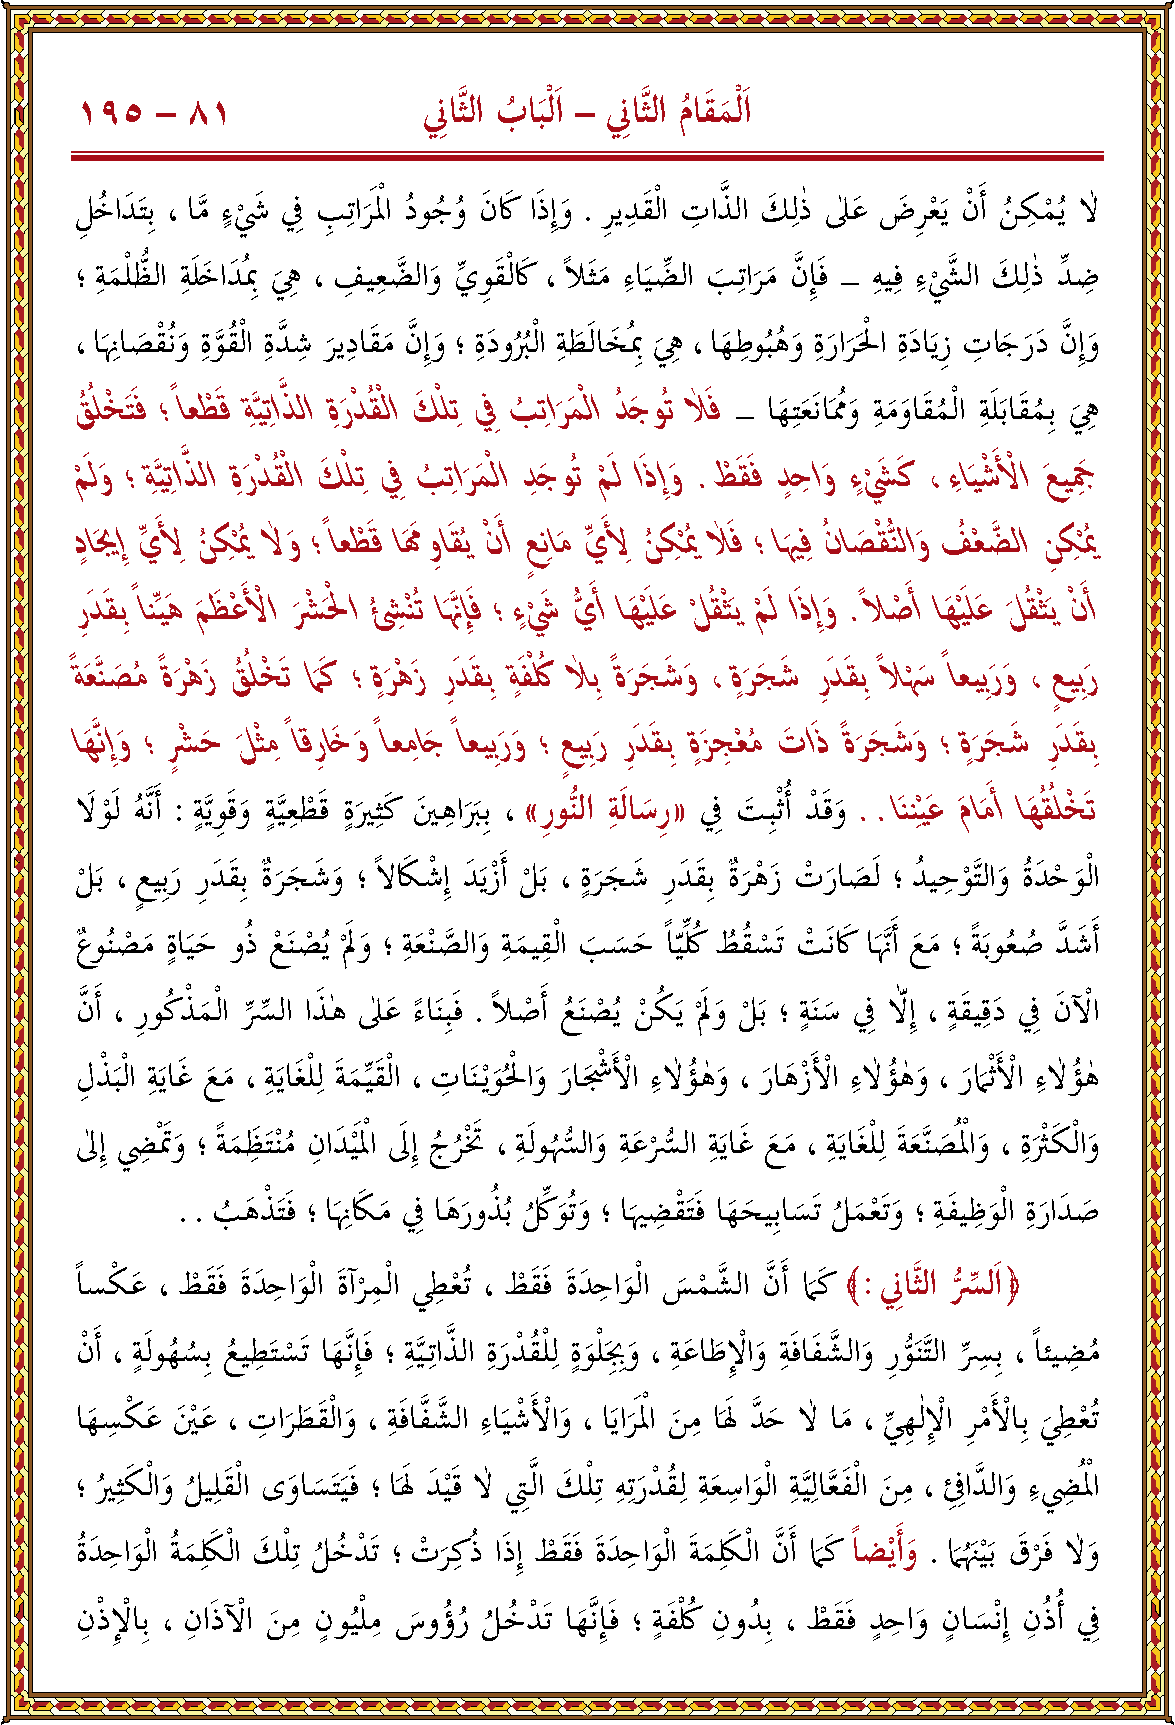 اَلْمَقَامُ الثَّانِي – اَلْبَابُ الثَّانِي ٨١ – ١٩٥
لاٰ يُمْكِنُ أَنْ يَعْرِضَ عَلىٰ ذٰلِكَ الذَّاتِ الْقَدِيرِ . وَإِذَا كَانَ وُجُودُ الْمَرَاتِبِ فِي شَيْءٍ مَّا ، بِتَدَاخُلِ
ضِدِّ ذٰلِكَ الشَّيْءِ فِيهِ – فَإِنَّ مَرَاتِبَ الضِّيَاءِ مَثَلاً ، كَالْقَوِيِّ وَالضَّعِيفِ ، هِيَ بِمُدَاخَلَةِ الظُّلْمَةِ ؛
وَإِنَّ دَرَجَاتِ زِيَادَةِ الْحَرَارَةِ وَهُبُوطِهَا ، هِيَ بِمُخَالَطَةِ الْبُرُودَةِ ؛ وَإِنَّ مَقَادِيرَ شِدَّةِ الْقُوَّةِ وَنُقْصَانِهَا ،
هِيَ بِمُقَابَلَةِ الْمُقَاوَمَةِ وَمُمَانَعَتِهَا – فَلاٰ تُوجَدُ الْمَرَاتِبُ فِي تِلْكَ الْقُدْرَةِ الذَّاتِيَّةِ قَطْعاً ؛ فَتَخْلُقُ
جَمِيعَ الْأَشْيَاءِ ، كَشَيْءٍ وَاحِدٍ فَقَطْ . وَإِذَا لَمْ تُوجَدِ الْمَرَاتِبُ فِي تِلْكَ الْقُدْرَةِ الذَّاتِيَّةِ ؛ وَلَمْ
يُمْكِنِ الضَّعْفُ وَالنُّقْصَانُ فِيهَا ؛ فَلاٰ يُمْكِنُ لِأَيِّ مَانِعٍ أَنْ يُقَاوِ مَهَا قَطْعاً ؛ وَلاٰ يُمْكِنُ لِأَيِّ إِيجَادٍ
أَنْ يَثْقُلَ عَلَيْهَا أَصْلاً . وَإِذَا لَمْ يَثْقُلْ عَلَيْهَا أَيُّ شَيْءٍ ؛ فَإِنَّهَا تُنْشِئُ الْحَشْرَ الْأَعْظَمَ هَيِّناً بِقَدَرِ
رَبِيعٍ ، وَرَبِيعاً سَهْلاً بِقَدَرِ شَجَرَةٍ ، وَشَجَرَةً بِلاٰ كُلْفَةٍ بِقَدَرِ زَهْرَةٍ ؛ كَمَا تَخْلُقُ زَهْرَةً مُصَنَّعَةً
بِقَدَرِ شَجَرَةٍ ؛ وَشَجَرَةً ذَاتَ مُعْجِزَةٍ بِقَدَرِ رَبِيعٍ ؛ وَرَبِيعاً جَامِعاً وَخَارِقاً مِثْلَ حَشْرٍ ؛ وَإِنَّهَا
تَخْلُقُهَا أَمَامَ عَيْنِنَا . . وَقَدْ أُثْبِتَ فِي «رِسَالَةِ النُّورِ» ، بِبَرَاهِينَ كَثِيرَةٍ قَطْعِيَّةٍ وَقَوِيَّةٍ : أَنَّهُ لَوْلَا
الْوَحْدَةُ وَالتَّوْحِيدُ ؛ لَصَارَتْ زَهْرَةٌ بِقَدَرِ شَجَرَةٍ ، بَلْ أَزْيَدَ إِشْكَالاً ؛ وَشَجَرَةٌ بِقَدَرِ رَبِيعٍ ، بَلْ
أَشَدَّ صُعُوبَةً ؛ مَعَ أَنَّهَا كَانَتْ تَسْقُطُ كُلِّيّاً حَسَبَ الْقِيمَةِ وَالصَّنْعَةِ ؛ وَلَمْ يُصْنَعْ ذُو حَيَاةٍ مَصْنُوعٌ
الْآنَ فِي دَقِيقَةٍ ، إِلّاٰ فِي سَنَةٍ ؛ بَلْ وَلَمْ يَكُنْ يُصْنَعُ أَصْلاً . فَبِنَاءً عَلىٰ هٰذَا السِّرِّ الْمَذْكُورِ ، أَنَّ
هٰؤُلاٰءِ الْأَثْمَارَ ، وَهٰؤُلاٰءِ الْأَزْهَارَ ، وَهٰؤُلاٰءِ الْأَشْجَارَ وَالْحُوَيْنَاتِ ، الْقَيِّمَةَ لِلْغَايَةِ ، مَعَ غَايَةِ الْبَذْلِ
وَالْكَثْرَةِ ، وَالْمُصَنَّعَةَ لِلْغَايَةِ ، مَعَ غَايَةِ السُّرْعَةِ وَالسُّهُولَةِ ، تَخْرُجُ إِلَى الْمَيْدَانِ مُنْتَظِمَةً ؛ وَتَمْضِي إِلىٰ
صَدَارَةِ الْوَظِيفَةِ ؛ وَتَعْمَلُ تَسَابِيحَهَا فَتَقْضِيهَا ؛ وَتُوَكِّلُ بُذُورَهَا فِي مَكَانِهَا ؛ فَتَذْهَبُ . .
﴿اَلسِّرُّ الثَّانِي :﴾ كَمَا أَنَّ الشَّمْسَ الْوَاحِدَةَ فَقَطْ ، تُعْطِي الْمِرْآةَ الْوَاحِدَةَ فَقَطْ ، عَكْساً
مُضِيئاً ، بِسِرِّ التَّنَوُّرِ وَالشَّفَافَةِ وَالْإِطَاعَةِ ، وَبِجَلْوَةٍ لِلْقُدْرَةِ الذَّاتِيَّةِ ؛ فَإِنَّهَا تَسْتَطِيعُ بِسُهُولَةٍ ، أَنْ
تُعْطِيَ بِالْأَمْرِ الْإِلٰهِيِّ ، مَا لاٰ حَدَّ لَهَا مِنَ الْمَرَايَا ، وَالْأَشْيَاءِ الشَّفَّافَةِ ، وَالْقَطَرَاتِ ، عَيْنَ عَكْسِهَا
الْمُضِيءِ وَالدَّافِئِ ، مِنَ الْفَعَّالِيَّةِ الْوَاسِعَةِ لِقُدْرَتِهِ تِلْكَ الَّتِي لاٰ قَيْدَ لَهَا ؛ فَيَتَسَاوَى الْقَلِيلُ وَالْكَثِيرُ ؛
وَلاٰ فَرْقَ بَيْنَهُمَا . وَأَيْضاً كَمَا أَنَّ الْكَلِمَةَ الْوَاحِدَةَ فَقَطْ إِذَا ذُكِرَتْ ؛ تَدْخُلُ تِلْكَ الْكَلِمَةُ الْوَاحِدَةُ
فِي أُذُنِ إِنْسَانٍ وَاحِدٍ فَقَطْ ، بِدُونِ كُلْفَةٍ ؛ فَإِنَّهَا تَدْخُلُ رُؤُوسَ مِلْيُونٍ مِنَ الْآذَانِ ، بِالْإِذْنِ